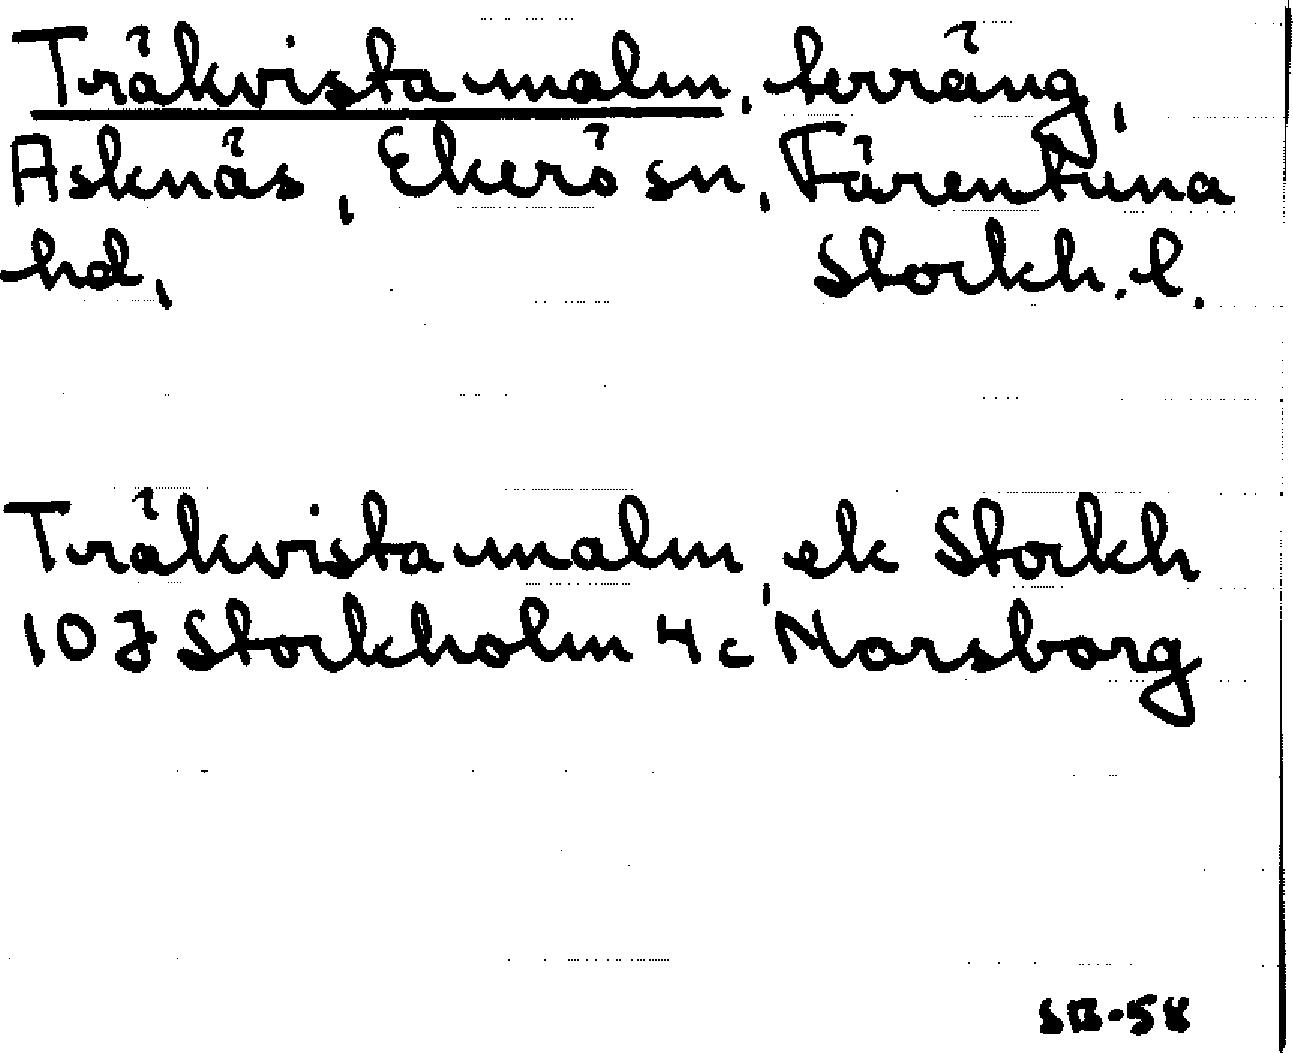 Träkvista malm, terräng,
Asknäs, Ekerö sn, Färentuna
hd, Stockh. l.
Träkvista malm, ek Stockh
10J Stockholm 4c Norsborg
SB-58